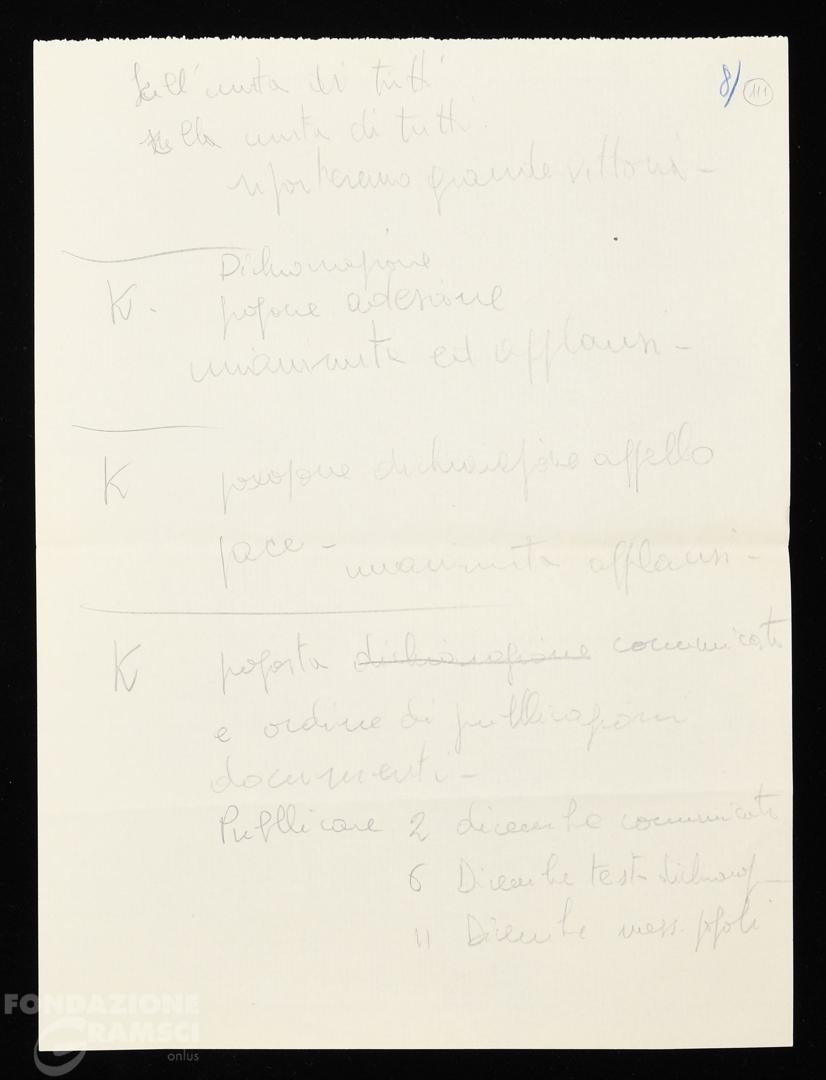 8/ 111
Sull'unità di tutti
nella unità di tutti
riporteremo grande vittoria -
Dichiarazione
K. propone adesione
unanimità ed applausi -
K propone dichiarazione appello
pace - unanimità applausi -
K proposta dichiarazione comunicato
e ordine di pubblicazioni
documenti -
Pubblicare 2 dicembre comunicato
6 Dicembre testo dichiaraz
11 Dicembre mess. popoli
FONDAZIONE
GRAMSCI
onlus